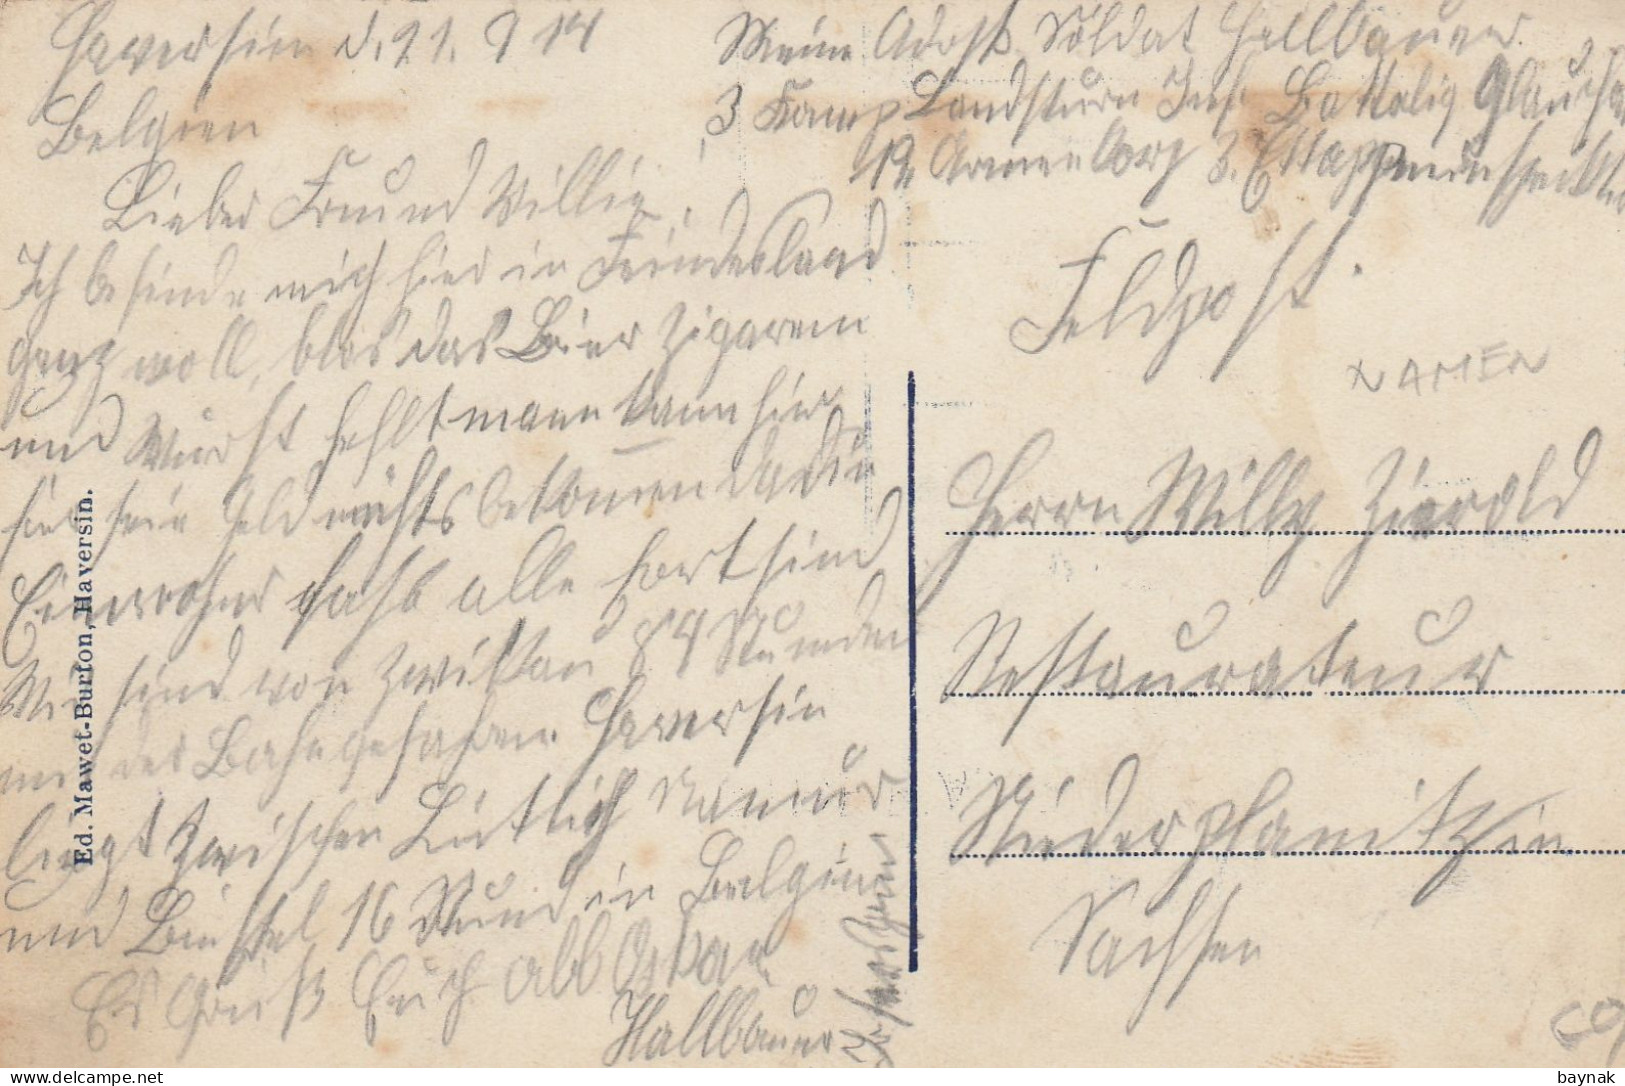 Haversin d. 21. 9 14
Belgien
Lieber Freund Willy!
Ich befinde mich hier in Feindesland
ganz woll, blos das Bier Zigaren
und Wurst fehlt mann kann hir
für sein Geld nichts bekomen da die
Einwohner fast alle fort sind
Wir sind von Zwikau 84 Stunden
mit der Bahn gefahren Haversin
liegt zwischen Lüttich Namur
und Brüssel 16 Stund in Belgien
Es Grüßt Euch all Oskar
Hallbauer
Meine Adost. Soldat Hallbauer
3 Komp Landsturm Inf. Battalig Glauchau
12 Armee Corp 3. Etappeninspektion
Feldpost.
NAMEN
Herrn Willy Zierold
Restaurateur
Niederplanitz in
Sachsen
Ed. Mawet-Burton, Haversin.
baynak